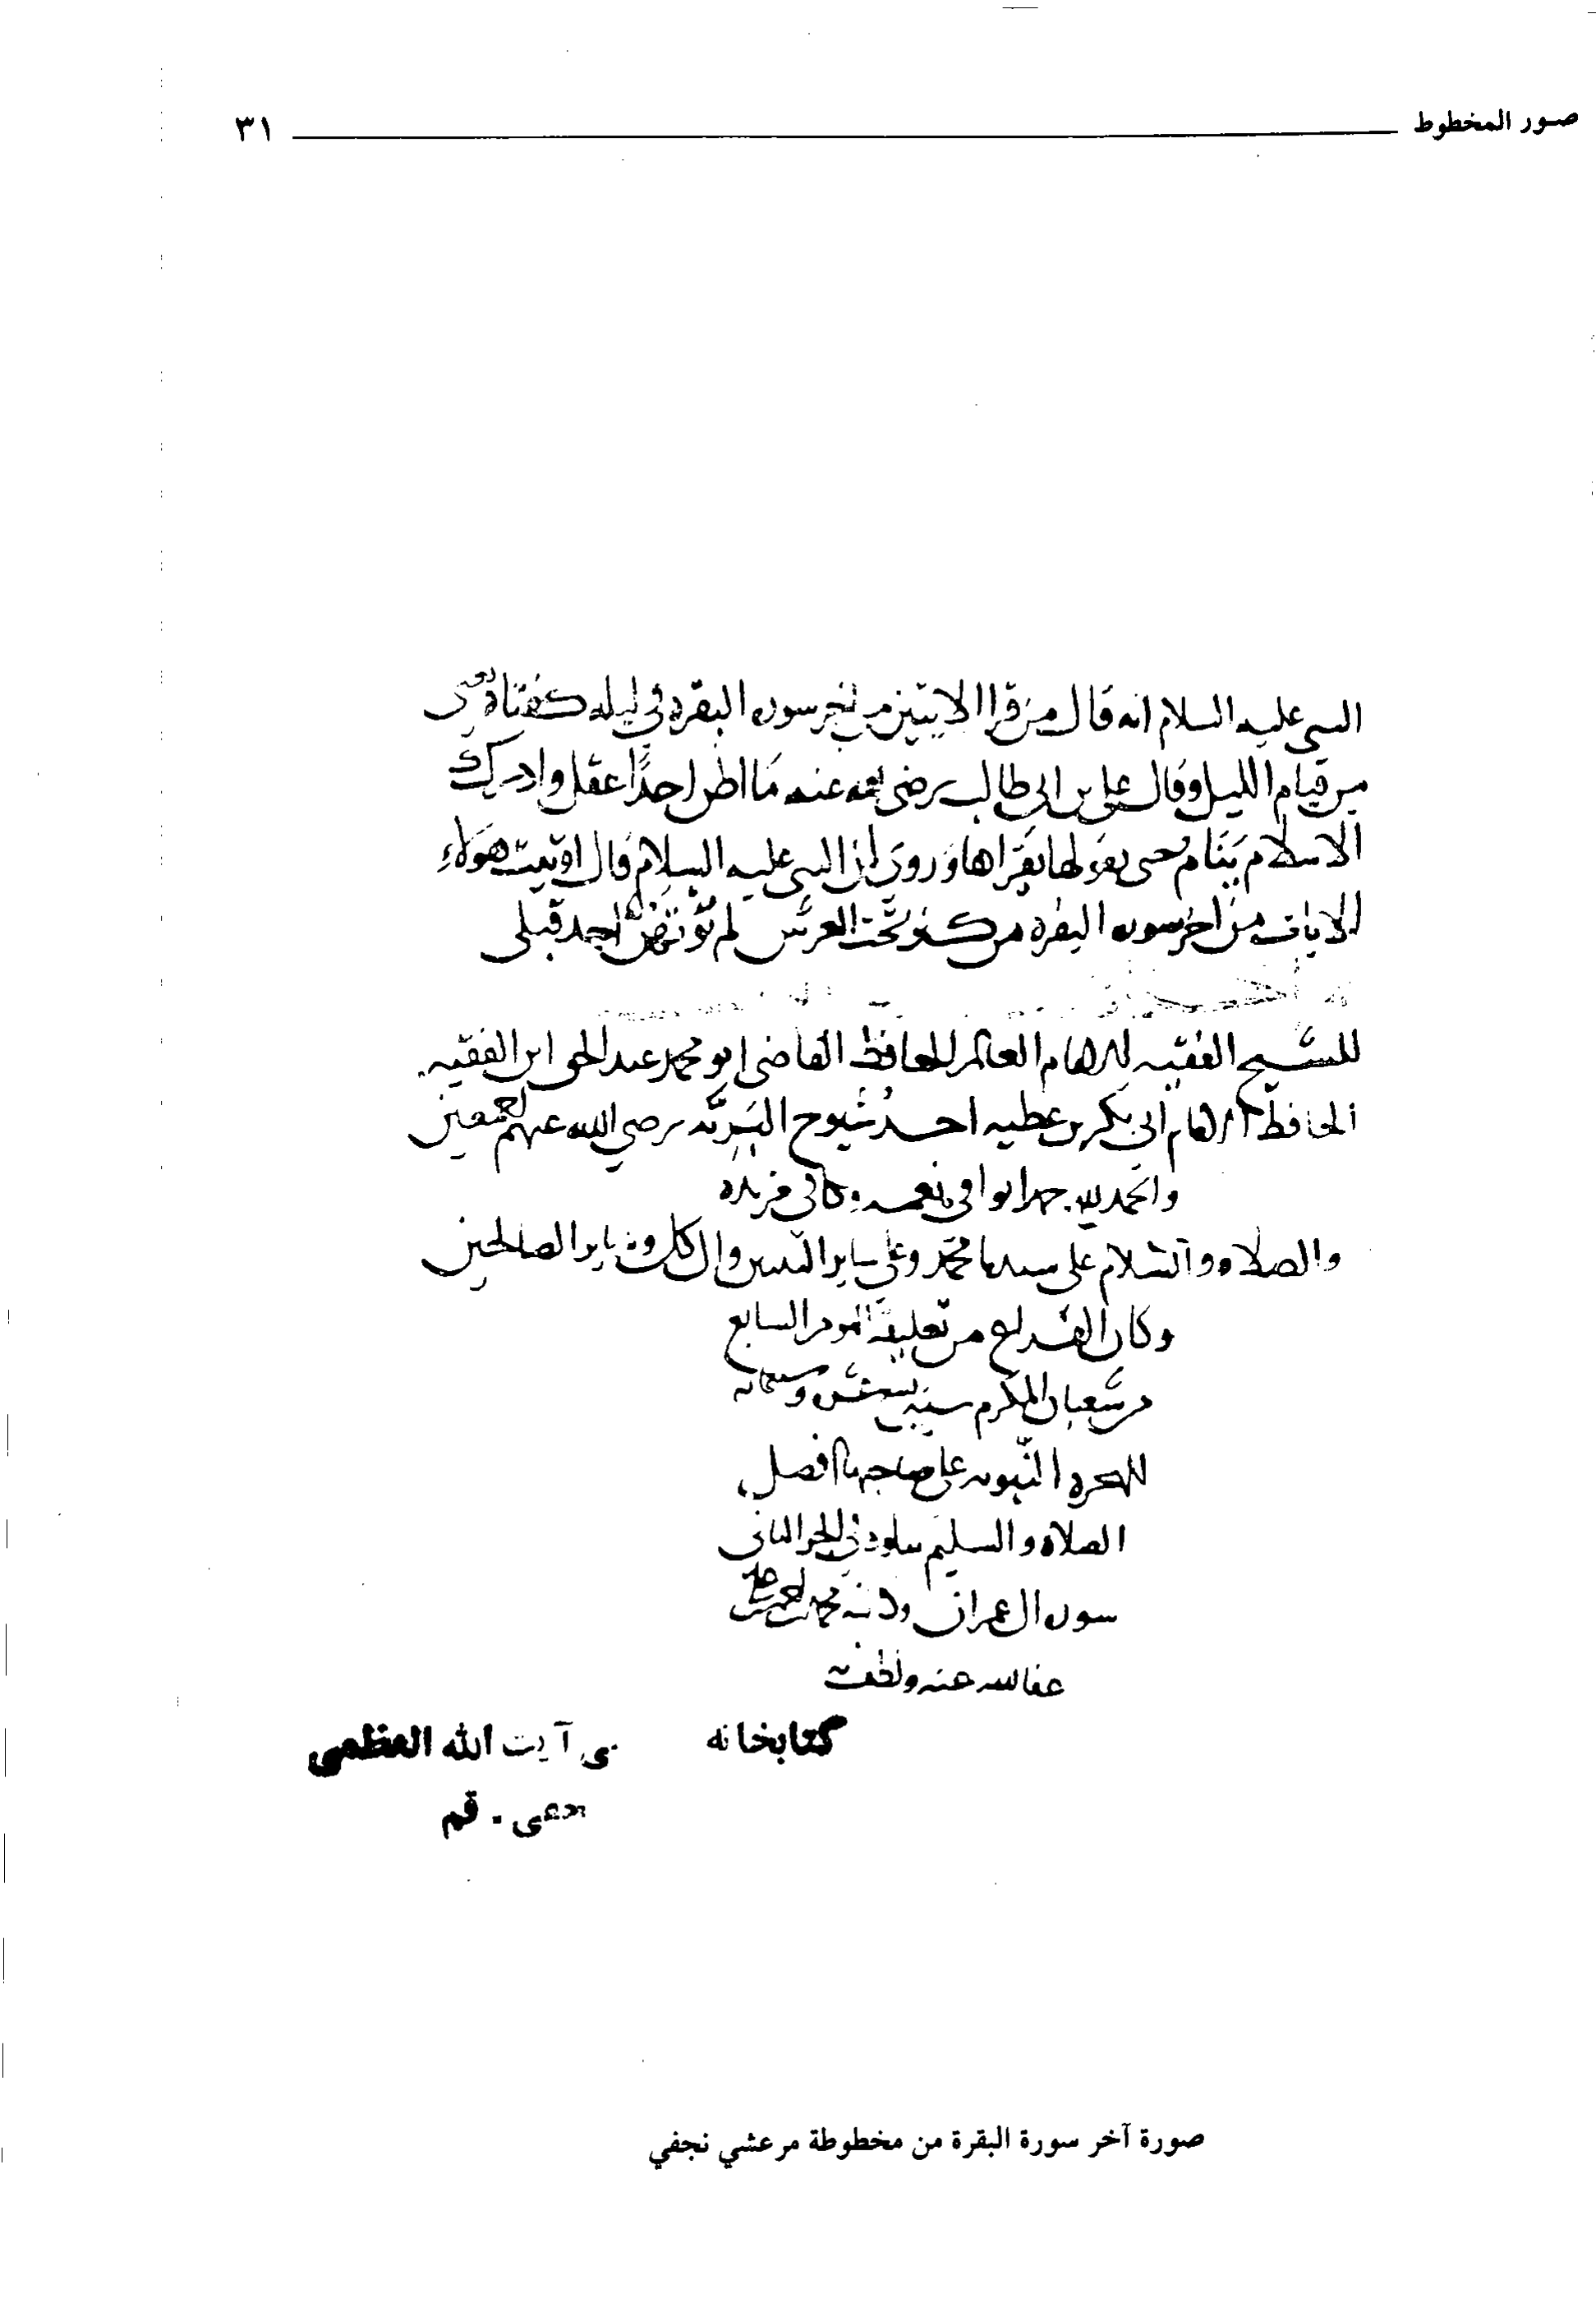 صور المخطوط ٣١
النبي عليه السلام انه قال من قرا الايتين من اخر سورة البقرة في ليلة كفتاه يعني
من قيام الليل وقال علي بن ابي طالب رضي الله عنه ما اظن احدًا عقل وادرك
الاسلام ينام حتى يقراها وروي ان النبي عليه السلام قال اوتيت هؤلاء
الايات من اخر سورة البقرة من كنز تحت العرش لم تؤتهن احد قبلي
للشيخ الفقيه الامام العالم الحافظ القاضي ابو محمد عبد الحق ابن الفقيه
الحافظ الامام ابي بكر بن عطيه احد شيوخ رضي الله عنهم اجمعين
والحمد لله حمدا يوافي نعمه ويكافي مزيده
والصلاه والسلام على سيدنا محمد وعلى ساير النبيين وال كل وساير الصالحين
وكان الفراغ من تعليقه اليوم السابع
من شعبان المكرم سنة وسبعمائه
للهجرة النبويه على صاحبها افضل
الصلاة والتسليم يتلوه في الجز الثاني
سورة ال عمران محمد
عفا الله عنه ولطف به
كتابخانه ی آیت الله العظمی
قم
صورة آخر سورة البقرة من مخطوطة مرعشي نجفي